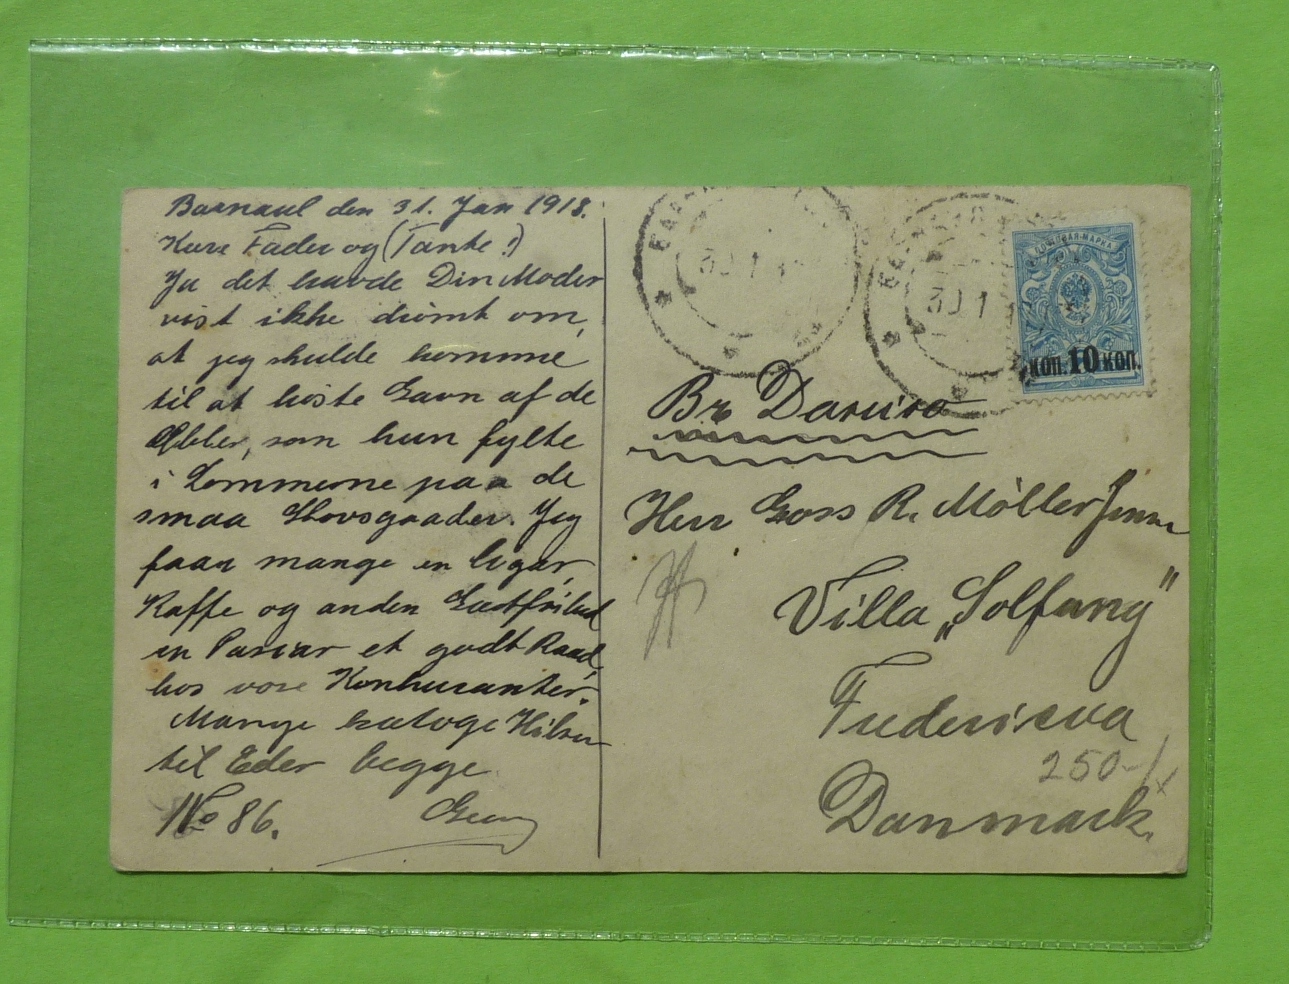 Barnaul den 31. Jan 1918.
Kære Fader og (Tante!)
Ja det havde Din Moder
vist ikke drömt om,
at jeg skulde komme
til at høste Gavn af de
Æbler, som hun fylte
i Lommerne paa de
smaa Skovsgaader. Jeg
faar mange en Cigar,
Kaffe og anden Gæstfrihed
et godt Raad
hos vore
Mange kærlige Hilsen
til Eder begge
No 86. Georg
30 1
30 1
ПОЧТОВАЯ МАРКА
КОП. 10 КОП.
Herr R. Möller
Villa „Solfang"
Fredericia
250-/
Danmark.